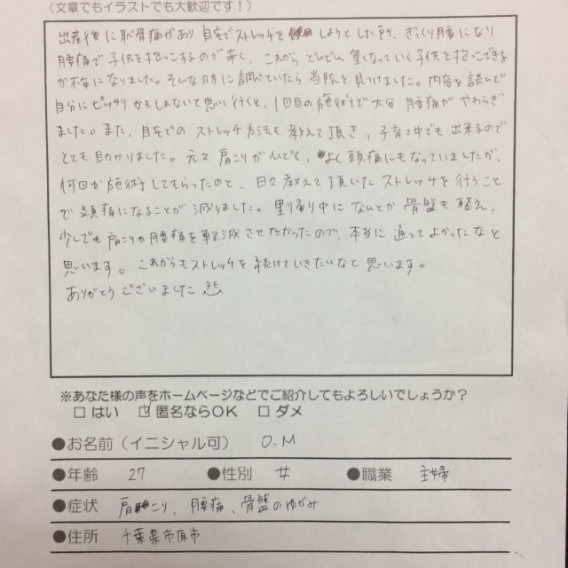 (文章でもイラストでも大歓迎です！)
出産後に恥骨痛があり自宅でストレッチをしようとした所、ぎっくり腰になり
腰痛で子供を抱っこするのが辛く、これからどんどん重くなっていく子供を抱っこできる
か不安になりました。そんな時に調べていたら当院を見つけました。内容を読んで
自分にピッタリかもしれないと思い行くと、1回目の施術で大分腰痛がやわらぎ
ました。また、自宅でのストレッチ方法も教えて頂き、子育て中でも出来るので
とても助かりました。元々肩こりがひどく、よく頭痛にもなっていましたが、
何回か施術してもらったのと、日々教えて頂いたストレッチを行うこと
で頭痛になることが減りました。里帰り中になんとか骨盤も整え、
少しでも肩こりや腰痛を軽減させたかったので、本当に通ってよかったなと
思います。これからもストレッチを続けていきたいなと思います。
ありがとうございました
※あなた様の声をホームページなどでご紹介してもよろしいでしょうか？
□はい ☑匿名ならOK □ダメ
●お名前（イニシャル可） O.M
●年齢 27 ●性別 女 ●職業 主婦
●症状 肩こり、腰痛、骨盤のゆがみ
●住所 千葉県市原市